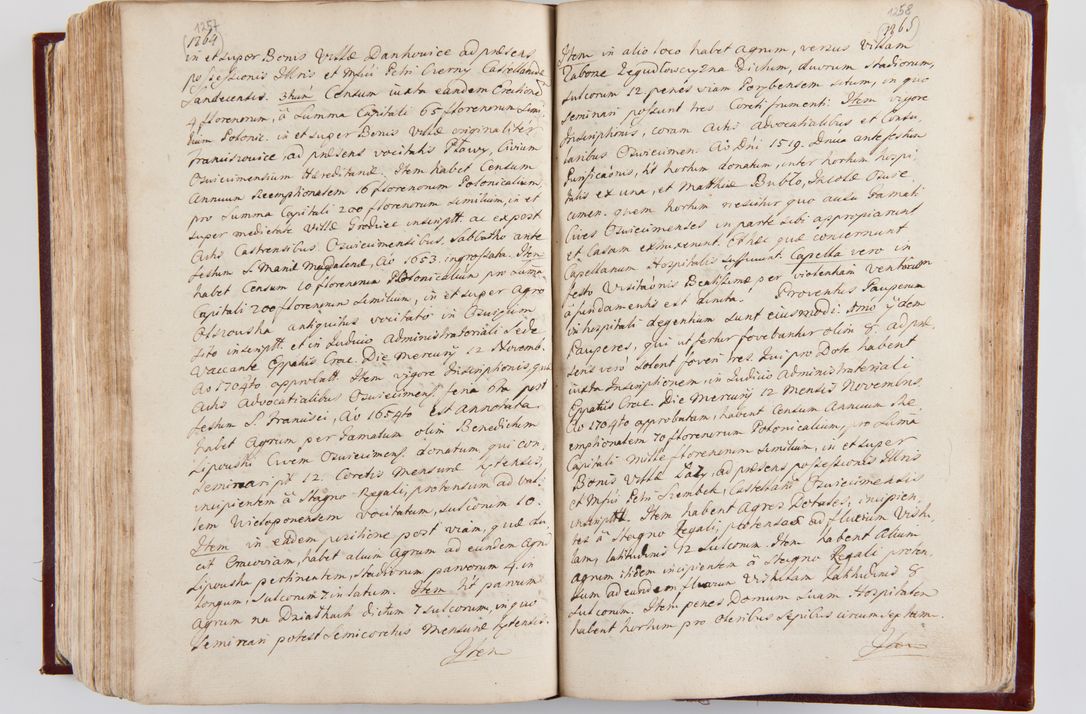 1257
(1264)
in et super Bonis Villæ Dankowice ad præsens
possessionis Illris et Mfici Petri Czerny Castellani
Sandecensis. 3tium Censum iuxta eandem Erectionem
4 florenorum, à Summa Capitali 65 florenorum simi-
lium Polonic. in et super Bonis Villæ originaliter
Franciszowice, ad præsens vocitatis Pławy, Civium
Oswiecimensium Hereditariæ. Item habet Censum
Annuum Reemptionalem 16 florenorum Polonicalium,
pro Summa Capitali 200 florenorum similium, in et
super medietate Villæ Grodzice inscriptt ac ex post
Actis Castrensibus Oswiecimensibus, Sabbatho ante
festum S. Mariæ Magdalenæ, Ao 1653. ingrossata. Item
habet Censum 10 florenorum Polonicalium pro Summa
Capitali 200 florenorum similium, in et super Agro
Olszowska antiquitus vocitato in Oswiecim
sito inscriptt. et in Judicio Administratoriali Sede
Vacante Eppatus Crac. Die Mercurij 12 Novemb.
Ao 1704to approbatt. Item vigore Inscriptionis, quæ
Actis Advocatialibus Oswiecimens. feria 6ta post
festum S. Francisci, Ao 1654to est annotata
habet Agrum per Famatum olim Benedictum
Lipowski Civem Oswiecimens. donatum, qui con,
seminari pt 12. Coretis Mensuræ Zptensis,
incipientem à Stagno Regali, protensum ad val-
lem Wieloponensem vocitatum, sulcorum 10.
Item in eadem positione post viam, quæ du,
cit Cracoviam, habet alium Agrum ad eundem Agrum
Lipowska pertinentem, Stadiorum parvorum 4. in
longum, sulcorum 7 in latum. Item ht parvum
Agrum na Dziadkach dictum 7 sulcorum, in quo
seminari potest semicoretus Mensuræ Zptensis.
Item
1258
(1265)
Item in alio loco habet Agrum, versus Villam
Zaborze Zegudłowczyzna dictum, duorum Stadiorum,
sulcorum 12 penes viam Porębensem situm, in quo
seminari possunt tres Coreti frumenti. Item vigore
Inscriptionis, coram Actis Advocatialibus et Consu,
laribus Oswiecimen. Ao Dni 1519. Dnica ante festum
Purificaonis, ht hortum donatum, inter hortum hospi,
talis ex una, et Matthiæ Bubło, Incolæ Oswie,
cimen. quem hortum nescitur quo ausu Famati
Cives Oswiecimenses in parte sibi appropiarunt
et Casam exstruxerunt. Et hæc quæ concernunt
Capellanum Hospitalis sufficiunt. Capella vero in
festo Visitaonis Beatissimæ per violentiam Ventorum
à fundamentis est diruta. Proventus Pauperum
in hospitali degentium sunt eiusmodi. Anno ijdem
Pauperes, qui ut fertur fovebantur olim 8. ad præ,
sens verò solent foveri tres. Qui pro Dote habent
iuxta Inscriptionem, in Judicio Administratoriali
Eppatus Crac. Die Mercurij 12 Mensis Novembris
Ao 1704to approbatam, habent Censum Annuum Re
emptionalem 70 florenorum Polonicalium, pro Summa
Capitali Mille florenorum similium, in et super
Bonis Villæ Łazy, ad præsens possessionis Illris
et Mfici Petri Szembek, Castellani Oswiecimensis
inscriptt. Item habent Agros Dotales, incipien,
tes à Stagno Regali, protensos ad fluvium Vistu,
lam, latitudinis 12 sulcorum. Item habent Alium
Agrum itidem incipientem à Stagno Regali proten,
sum ad eundem fluvium Vistulam latitudinis 8
sulcorum. Item penes Domum suam Hospitalem
habent hortum pro oleribus sepibus circumseptum.
Item